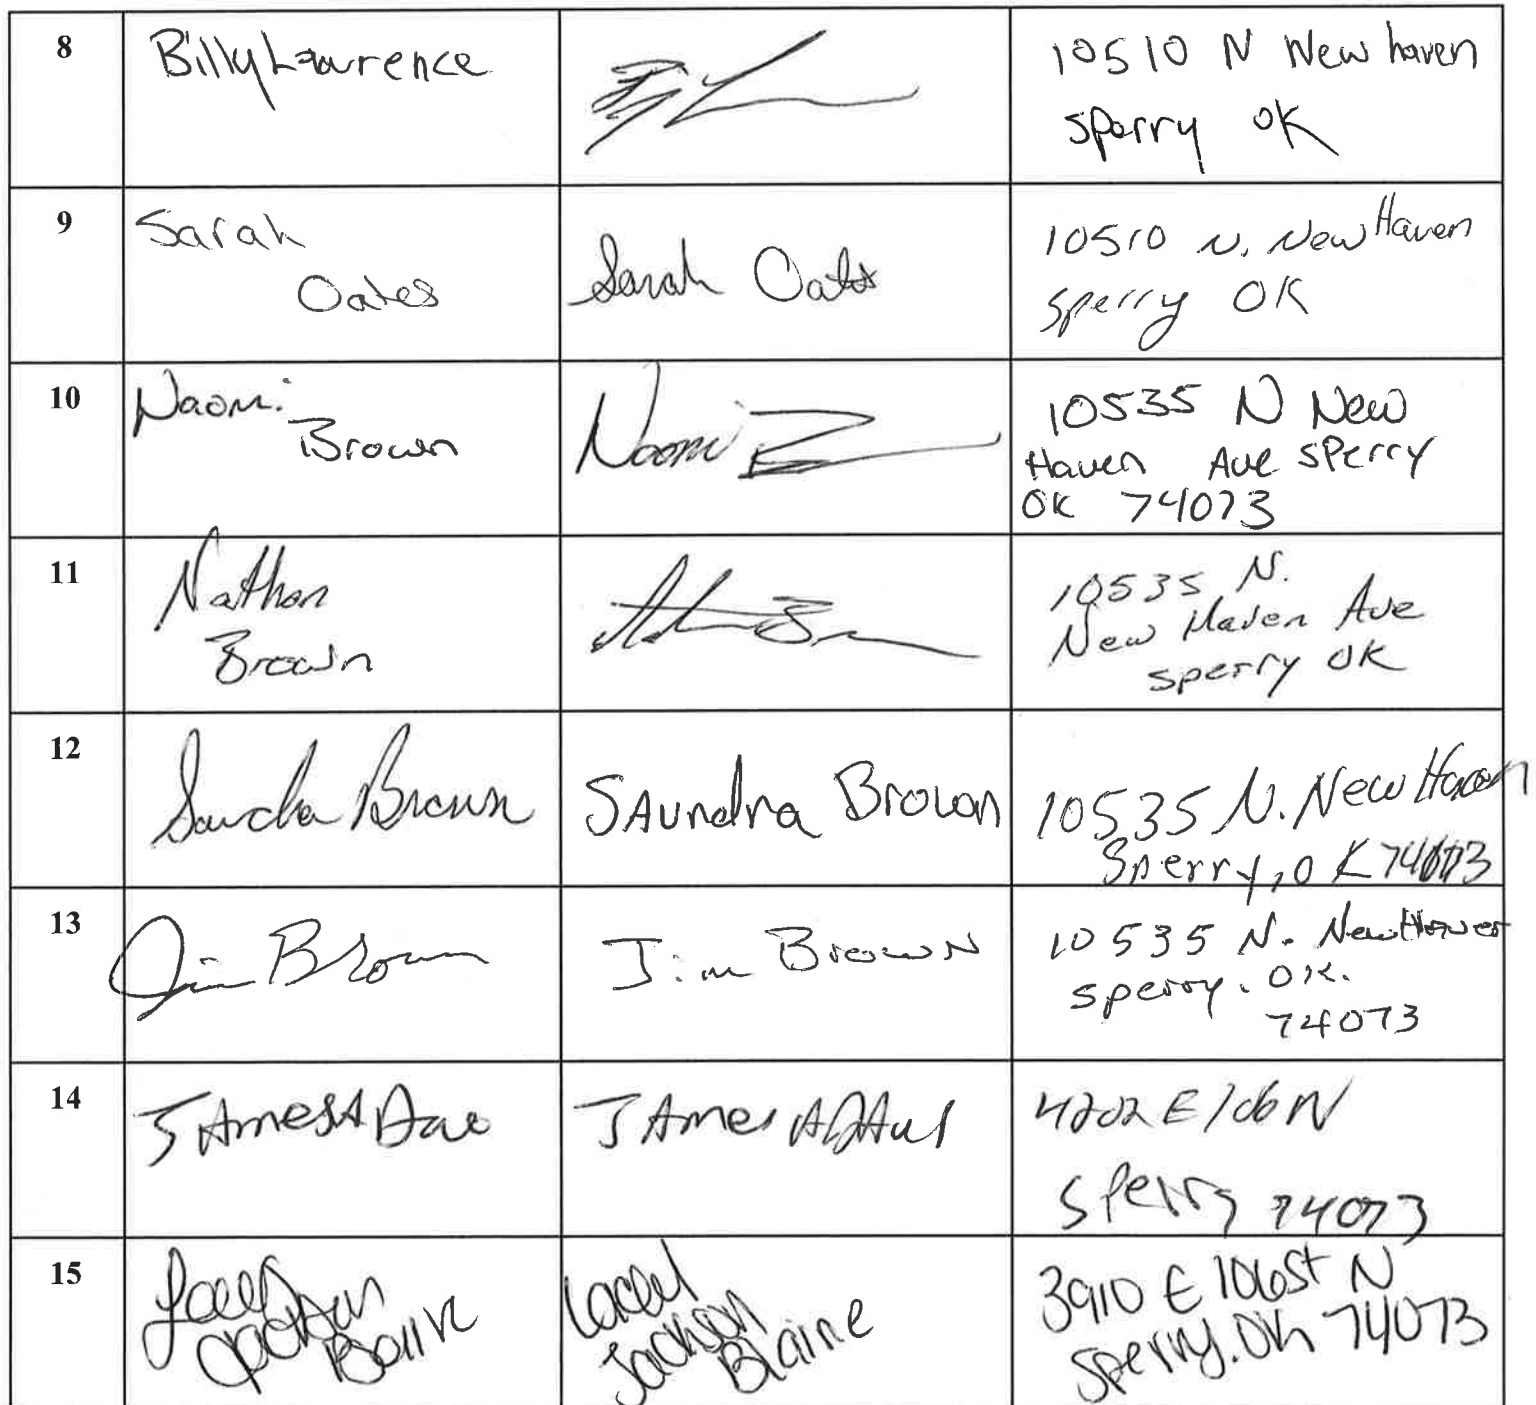 8 Billy Lawrence 10510 N New haven
sperry OK
9 Sarah
Oates Sarah Oates 10510 N. New Haven
sperry OK
10 Naomi
Brown Naomi B 10535 N New
Haven Ave Sperry
OK 74073
11 Nathan
Brown 10535 N.
New Haven Ave
sperry OK
12 Saundra Brown SAundra Brown 10535 N. New Haven
Sperry, OK 74073
13 Jim Brown Jim Brown 10535 N. New Haven
sperry. OK.
74073
14 JAmes A JAmes A 4202 E 106 N
Sperry 74073
15 Jackson Lacey
Jackson
Blaine 3910 E 106 St N
Sperry. OK 74073